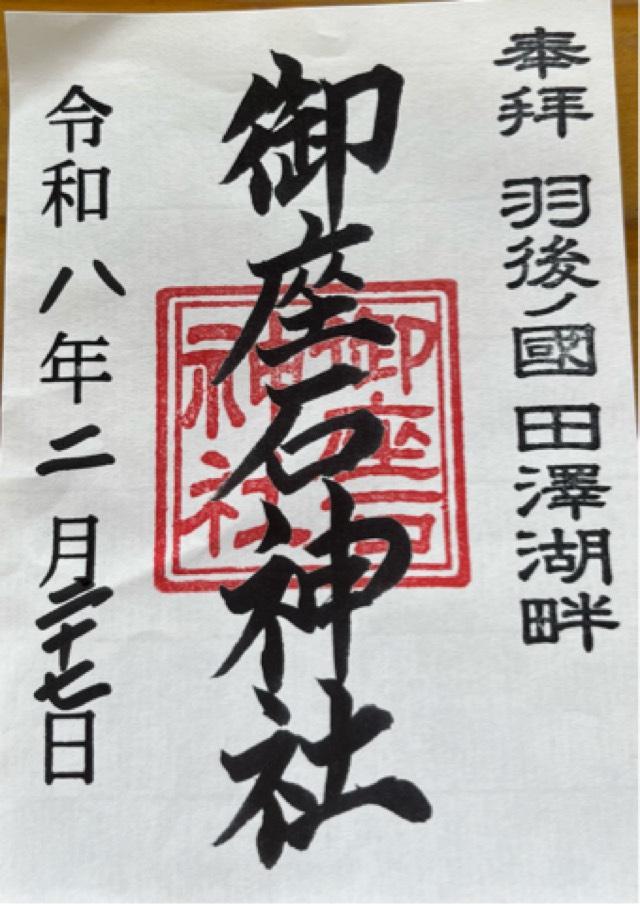 奉拜 羽後ノ國 田澤湖畔
御座石神社
御座石
神社
令和八年二月二十七日